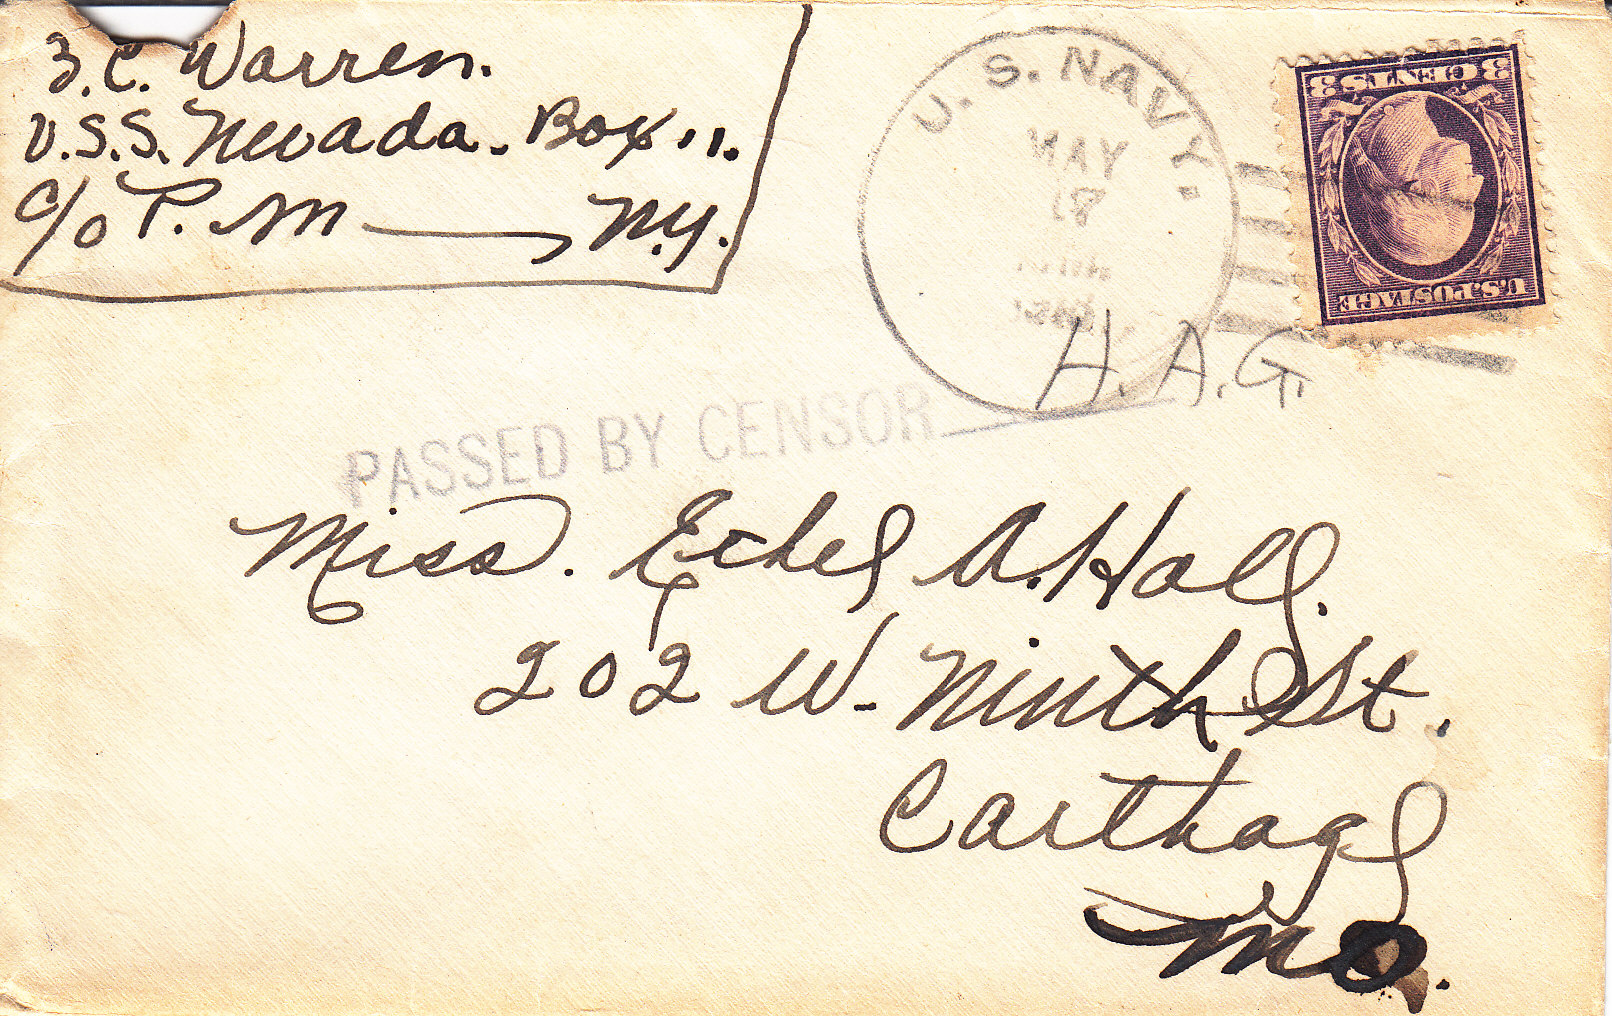 Z. C. Warren.
U.S.S. Nevada. Box 11.
c/o P. M — N.Y.
U. S. NAVY.
MAY
3 CENTS 3
U.S. POSTAGE
H. A. G.
PASSED BY CENSOR
Miss. Ethel A. Hall.
202 W. Ninth St.
Carthage
Mo.